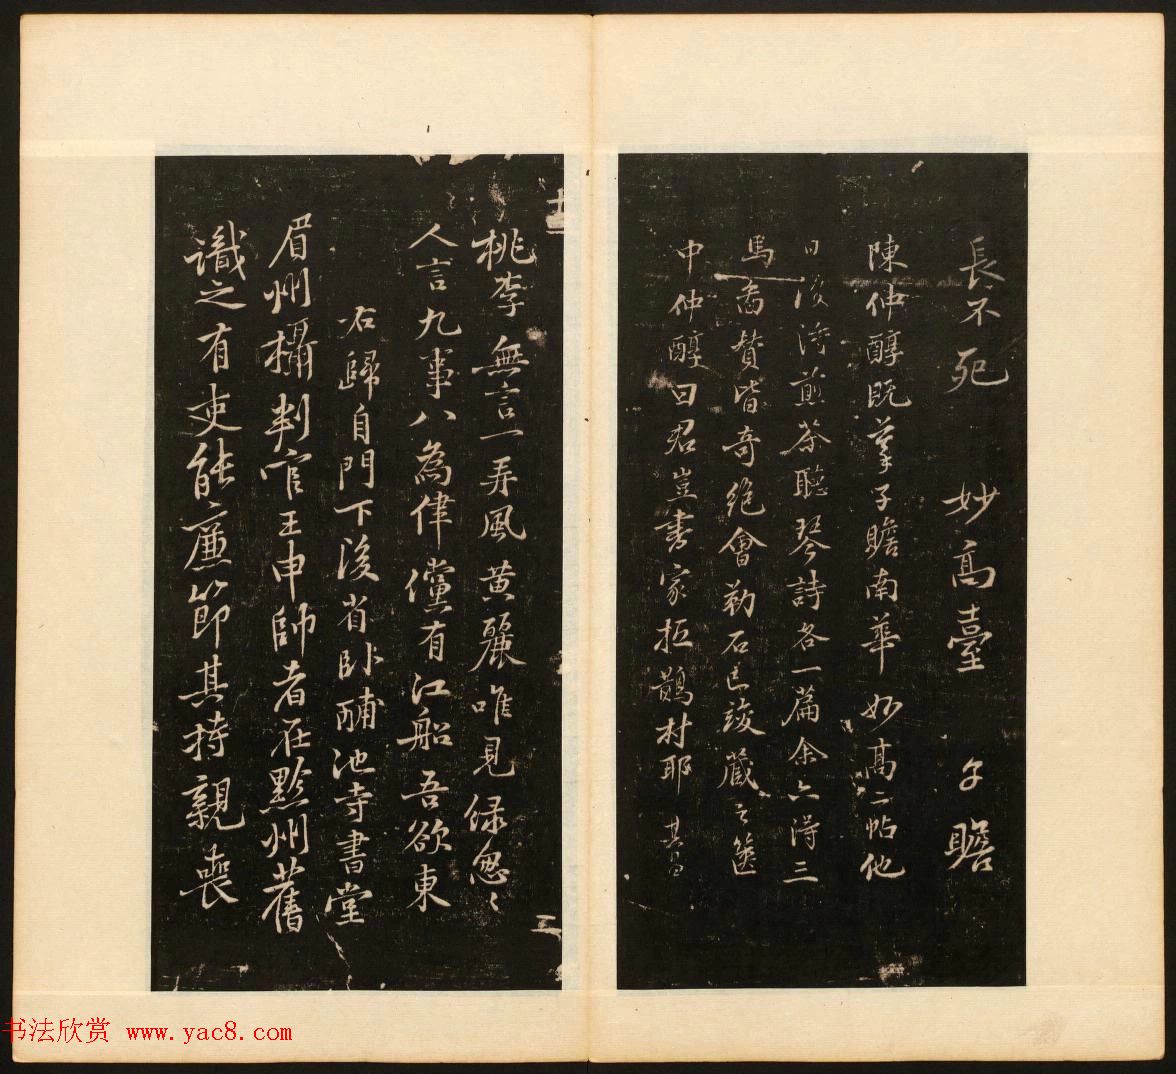 長不死 妙高臺 子瞻
陳仲醇既摹子瞻南華妙高二帖他
日後得煎茶聽琴詩各一篇余亦得三
馬圖贊皆奇絕會勒石已竣藏之篋
中仲醇曰君豈書家抵鵲村耶 其昌
桃李無言一弄風黃麗唯見綠怱〻
人言九事八為律儻有江船吾欲東
右歸自門下後省卧酺池寺書堂
眉州攝判官王申帥者在黔州舊
識之有吏能廉節其持親喪
三
书法欣赏 www.yac8.com